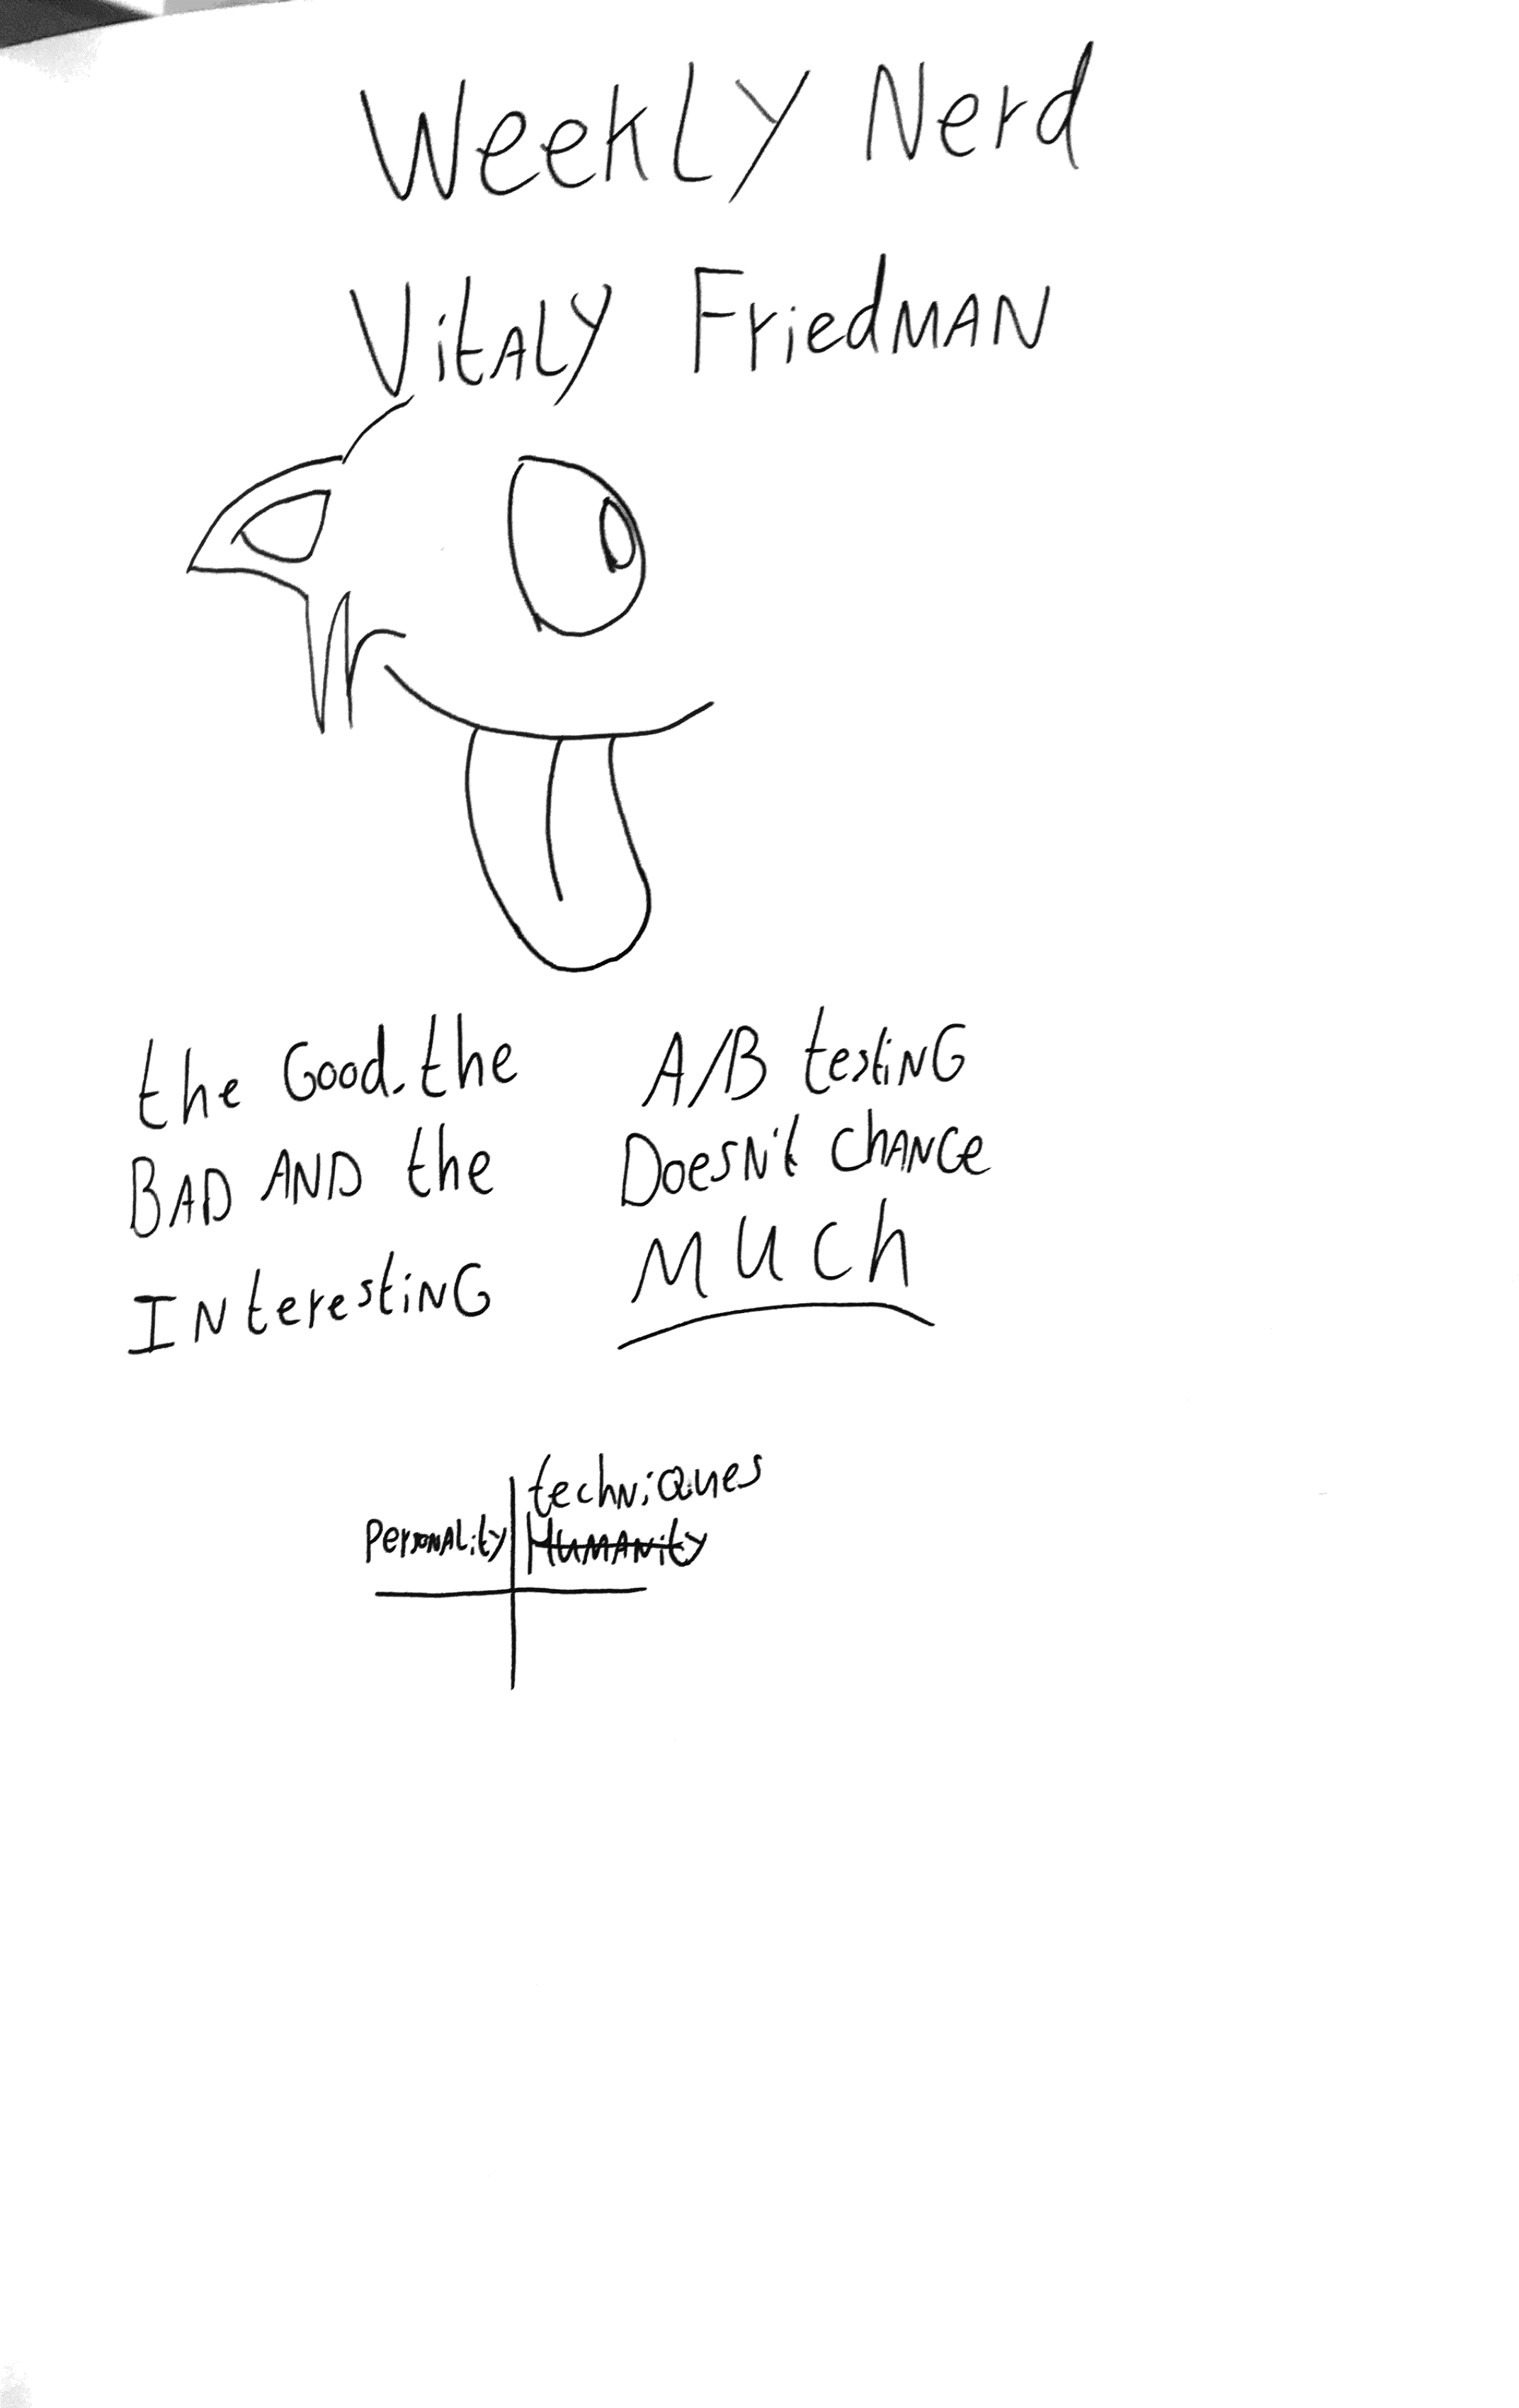 Weekly Nerd
Vitaly Friedman
the Good, the
BAD AND the
Interesting
A/B testing
Doesn't chance
Much
techniques
Personality
Humanity